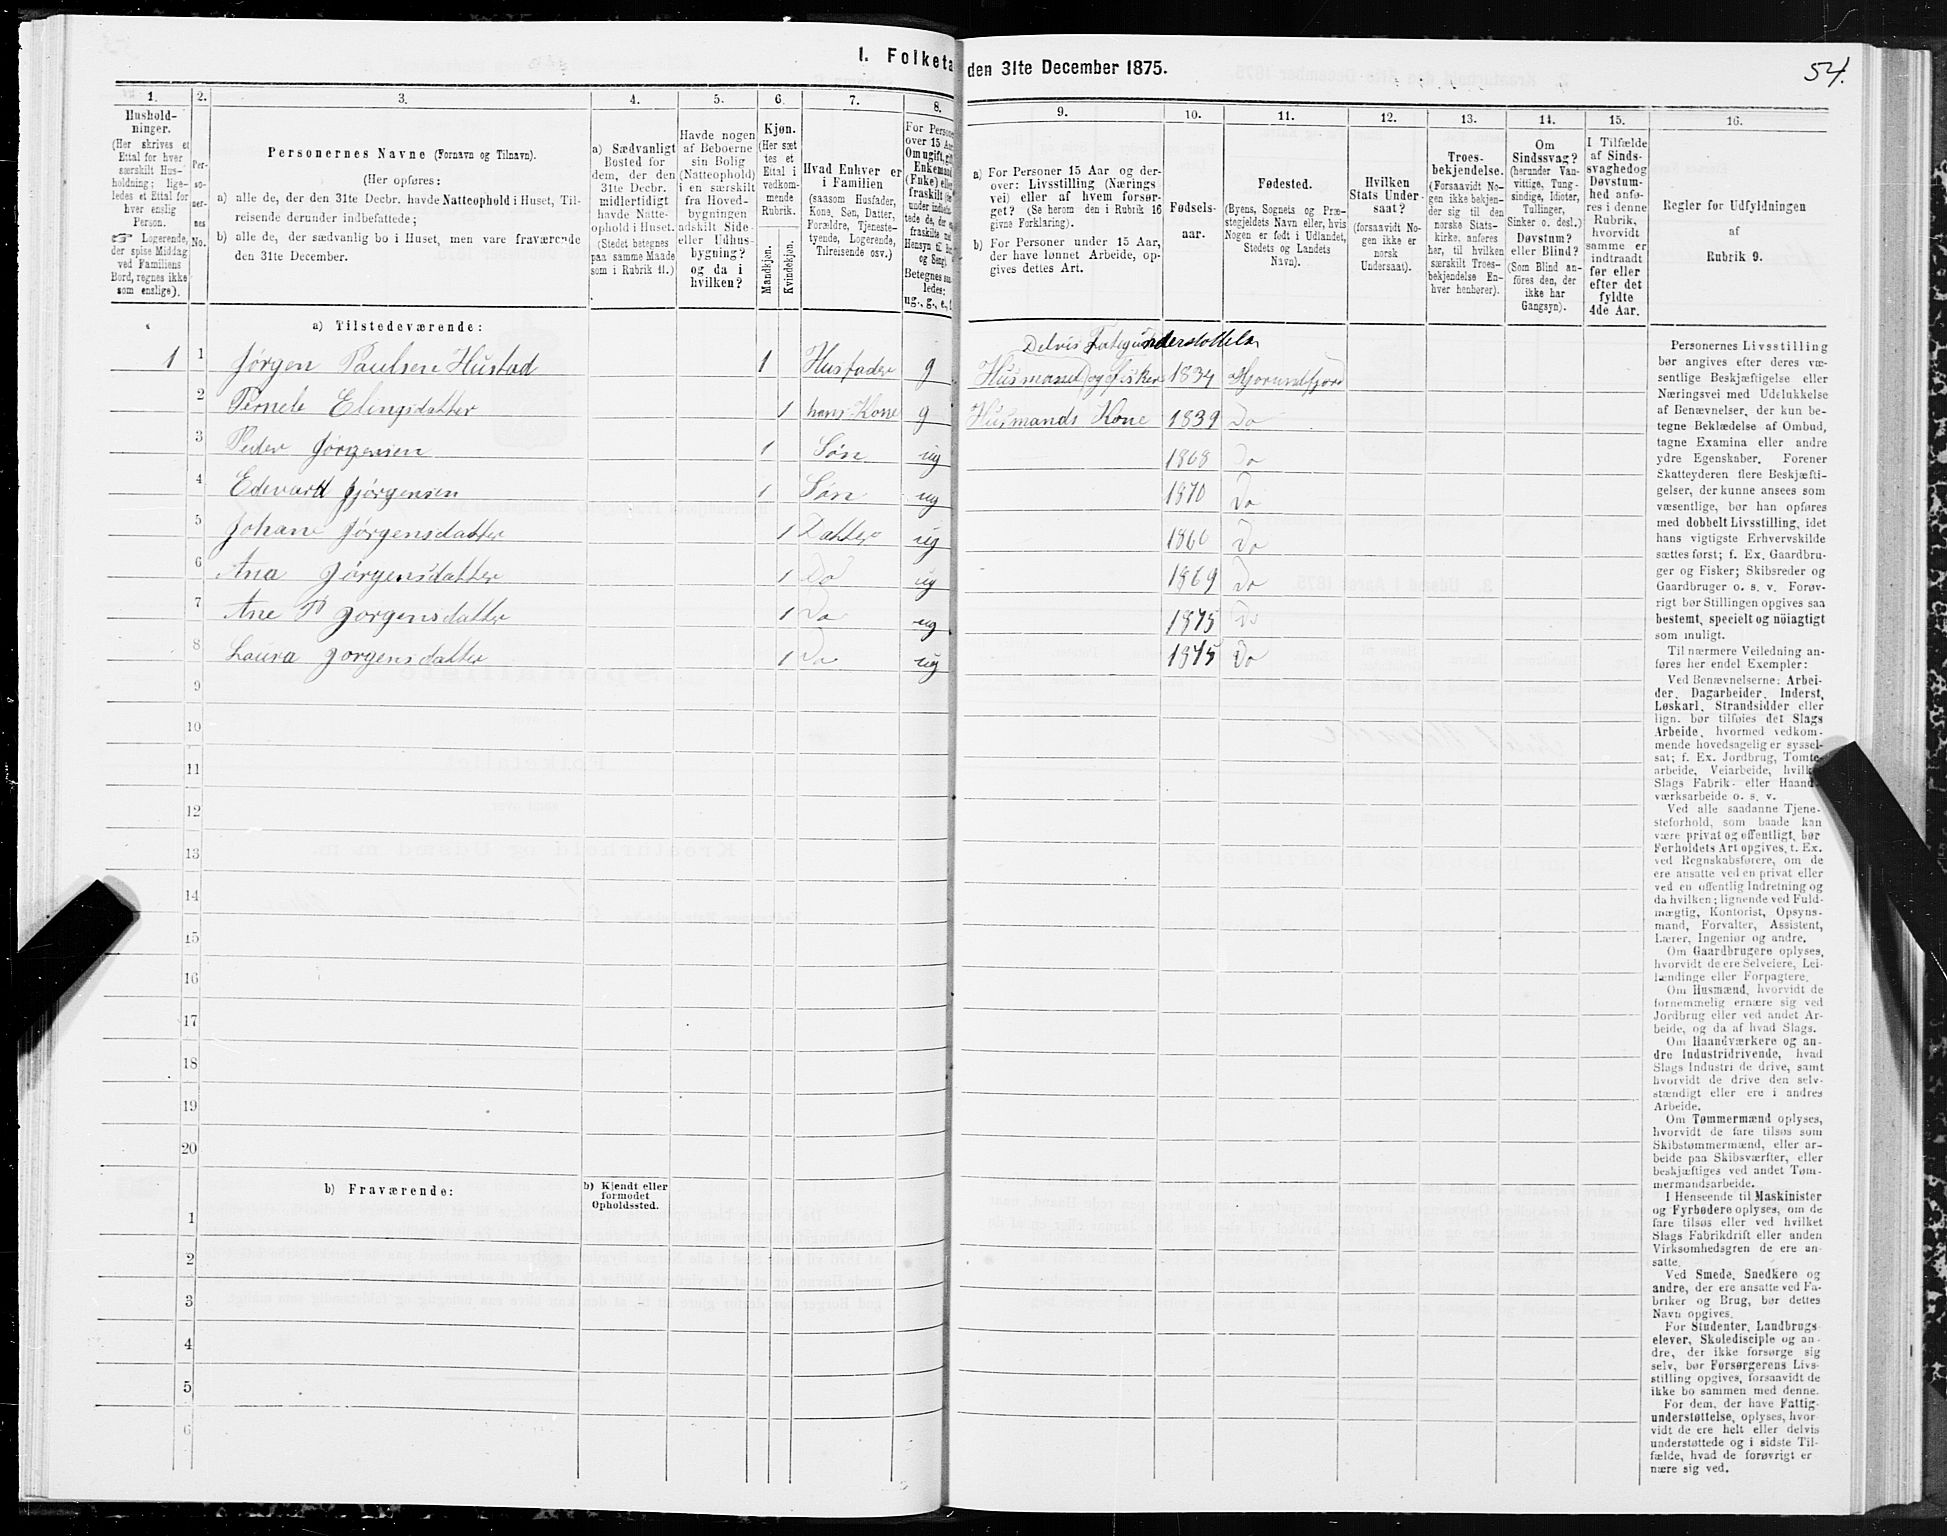 I. Folketa den 31te December 1875.
54.
1.
2.
3.
4.
5.
6.
7.
8.
9.
10.
11.
12.
13.
14.
15.
16.
Hushold-
ninger.
(Her skrives et
Ettal for hver
særskilt Hus-
holdning; lige-
ledes et Ettal for
hver enslig
Person.
☞ Logerende,
der spise Middag
ved Familiens
Bord, regnes ikke
som enslige).
Per-
so-
ner-
nes
No.
Personernes Navne (Fornavn og Tilnavn).
(Her opføres:
a) alle de, der den 31te Decbr. havde Natteophold i Huset, Til-
reisende derunder indbefattede;
b) alle de, der sædvanlig bo i Huset, men vare fraværende
den 31te December.
a) Sædvanligt
Bosted for
dem, der den
31te Decbr.
midlertidigt
havde Natte-
ophold i Huset.
(Stedet betegnes
paa samme Maade
som i Rubrik 11.)
Havde nogen
af Beboerne
sin Bolig
(Natteophold)
i en særskilt
fra Hoved-
bygningen
adskilt Side-
eller Udhus-
bygning?
og da i
hvilken?
Kjøn.
(Her sæt-
tes et
Ettal i
vedkom-
mende
Rubrik.
Mandkjøn.
Kvindekjøn.
Hvad Enhver er
i Familien
(saasom Husfader,
Kone, Søn, Datter,
Forældre, Tjeneste-
tyende, Logerende,
Tilreisende osv.)
For Persone
over 15 Aar
Om ugift, gift
Enkemand
(Enke) elle
fraskilt
Betegnes saa-
ledes:
ug., g., e.,
a) For Personer 15 Aar og der-
over: Livsstilling (Nærings-
vei) eller af hvem forsør-
get? (Se herom den i Rubrik 16
givne Forklaring).
b) For Personer under 15 Aar,
der have lønnet Arbeide, op-
gives dettes Art.
Fødsels-
aar.
Fødested.
(Byens, Sognets og Præ-
stegjeldets Navn eller, hvis
Nogen er født i Udlandet,
Stedets og Landets
Navn).
Hvilken
Stats Under-
saat?
(forsaavidt No-
gen ikke er
norsk
Undersaat).
Troes-
bekjendelse.
(Forsaavidt No-
gen ikke bekjen-
der sig til den
norske Stats-
kirke, anføres
her, til hvilken
særskilt Troes-
bekjendelse En-
hver henhører).
Om
Sindssvag?
(herunder Van-
vittige, Tung-
sindige, Idioter,
Tullinger,
Sinker o. desl.)
Døvstum?
eller Blind?
(Som Blind an-
føres den, der
ikke har
Gangsyn).
I Tilfælde
af Sinds-
svaghed og
Døvstum-
hed anfø-
res i denne
Rubrik,
hvorvidt
samme er
indtraadt
før eller
efter det
fyldte
4de Aar.
Regler for Udfyldningen
af
Rubrik 9.
a) Tilstedeværende:
Delvis Fatigunderstottelse
1 1 Jørgen Paulsen Hustad 1 Husfader g Husmand og Fisker 1834 Hjorundfjord
2 Pernele Elingsdatter 1 hans Kone g Husmands Kone 1839 Do
3 Peder Jørgensen 1 Søn ug 1868 Do
4 Edevard Jørgensen 1 Søn ug 1870 Do
5 Johane Jørgensdatter 1 Datter ug 1860 Do
6 Ana Jørgensdatter 1 Do ug 1869 Do
7 Ane P Jorgensdatter 1 Do ug 1875 Do
8 Laura Jorgensdatter 1 Do ug 1875 Do
9
10
11
12
13
14
15
16
17
18
19
20
b) Fraværende:
b) Kjendt eller
formodet
Opholdssted.
1
2
3
4
5
6
Personernes Livsstilling
bør angives efter deres væ-
sentlige Beskjæftigelse eller
Næringsvei med Udelukkelse
af Benævnelser, der kun be-
tegne Beklædelse af Ombud,
tagne Examina eller andre
ydre Egenskaber. Forener
Skatteyderen flere Beskjæfti-
gelser, der kunne ansees som
væsentlige, bør han opføres
med dobbelt Livsstilling, idet
hans vigtigste Erhvervskilde
sættes først; f. Ex. Gaardbru-
ger og Fisker; Skibsreder og
Gaardbruger o. s. v. Forøv-
rigt bør Stillingen opgives saa
bestemt, specielt og nöiagtigt
som muligt.
Til nærmere Veiledning an-
føres her endel Exempler:
Ved Benævnelserne: Arbei-
der, Dagarbeider, Inderst,
Løskarl, Strandsidder eller
lign. bør tilføies det Slags
Arbeide, hvormed vedkom-
mende hovedsagelig er syssel-
sat; f. Ex. Jordbrug, Tomte-
arbeide, Veiarbeide, hvilke
Slags Fabrik- eller Haand-
værksarbeide o. s. v.
Ved alle saadanne Tjene-
steforhold, som baade kan
være privat og offentligt, bør
Forholdets Art opgives, t. Ex.
ved Regnskabsførere, om de
ere ansatte ved en privat eller
ved en offentlig Indretning og
da hvilken; lignende ved Fuld-
mægtig, Kontorist, Opsyns-
mand, Forvalter, Assistent,
Lærer, Ingeniør og andre.
Om Gaardbrugere oplyses,
hvorvidt de ere Selveiere, Lei-
lændinge eller Forpagtere.
Om Husmænd, hvorvidt de
fornemmelig ernære sig ved
Jordbrug eller ved andet Ar-
beide, og da af hvad Slags.
Om Haandværkere og an-
dre Industridrivende, hvad
Slags Industri de drive, samt
hvorvidt de drive den selv-
stændigt eller ere i andres
Arbeide.
Om Tømmermænd oplyses,
hvorvidt de fare tilsøs som
Skibstømmermænd, eller ar-
beide paa Skibsværfter, eller
beskjæftiges ved andet Tøm-
mermandsarbeide.
I Henseende til Maskinister
og Fyrbødere oplyses, om de
fare tilsøs eller ved hvilket
Slags Fabrikdrift eller anden
Virksomhedsgren de ere an-
satte.
Ved Smede, Snedkere og
andre, der ere ansatte ved Fa-
briker og Brug, bør dettes
Navn opgives.
For Studenter, Landbrugs-
elever, Skoledisciple og an-
dre, der ikke forsørge sig
selv, bør Forsørgerens Livs-
stilling opgives, forsaavidt de
ikke bo sammen med denne.
For dem, der have Fattig-
understøttelse, oplyses, hvor-
vidt de ere helt eller delvis
understøttede og i sidste Til-
fælde, hvad de forøvrigt er
nære sig ved.